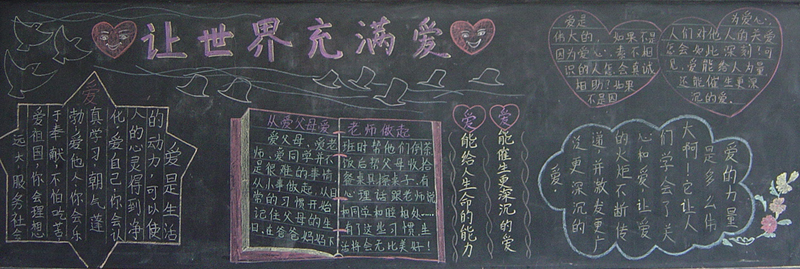 让世界充满爱
爱
爱是生活
的动力，可以使
人的心灵得到净
化，爱自己，你会认
真学习，朝气蓬
勃，爱他人，你会乐
于奉献，不怕吃苦
爱祖国，你会理想
远大，服务社会
从爱父母爱老师做起
爱父母，爱老
师，爱同学并不
是很难的事情
从小事做起，从日
常的习惯开始，
记住父母的生
日，在爸爸妈妈下
班时帮他们倒茶
饭后帮父母收拾
餐桌，擦桌子，有
心理话跟老师说
和同学和睦相处……
有了这些习惯，生
活将会无比美好！
爱能给人生命的能力
爱能催生更深沉的爱
爱是
伟大的，如果不是
因为爱心，素不相
识的人怎会真诚
相助！如果
不是因
为爱心，
人们对他人的关爱
怎会如此深刻！可
见，爱能给人力量
还能催生更深
沉的爱。
爱的力量
是多么伟
大啊！它让人
们学会了关
心和爱，让爱
的火炬不断传
递，并散发更广
泛更深沉的
爱。